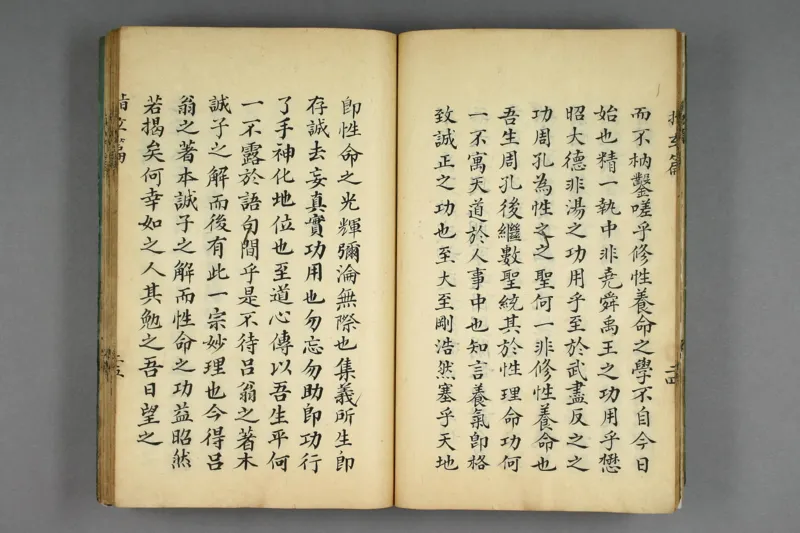 而不枘鑿嗟乎修性養命之學不自今日
始也精一執中非堯舜禹王之功用乎懋
昭大德非湯之功用乎至於武盡反之之
功周孔為性之之聖何一非修性養命也
吾生周孔後繼數聖統其於性理命功何
一不寓天道於人事中也知言養氣即格
致誠正之功也至大至剛浩然塞乎天地
即性命之光輝彌淪無際也集義所生即
存誠去妄真實功用也勿忘勿助即功行
了手神化地位也至道心傳以吾生平何
一不露於語句間乎是不待呂翁之著木
誠子之解而後有此一宗妙理也今得呂
翁之著本誠子之解而性命之功益昭然
若揭矣何幸如之人其勉之吾日望之